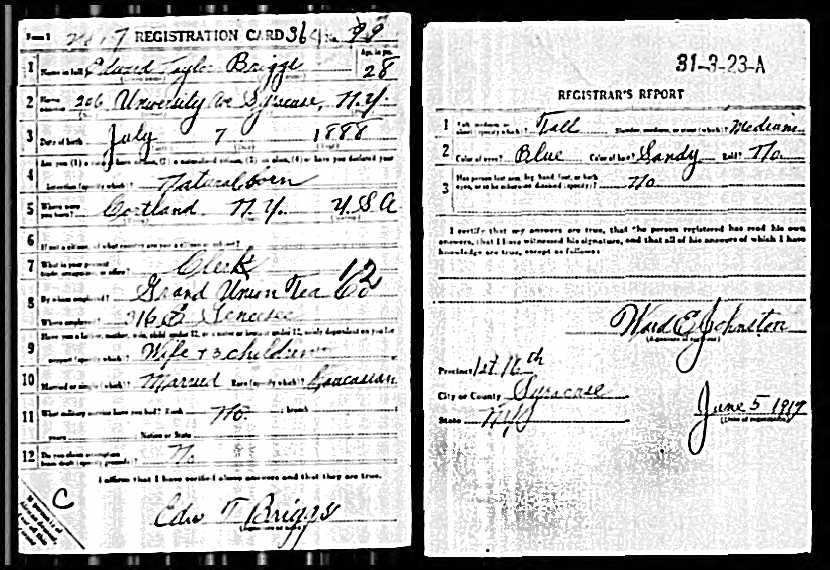 Form 1 REGISTRATION CARD 364 No. 99
1 Name in full Edward Taylor Briggs Age, in yrs. 28
2 Home address 206 University Ave Syracuse, N.Y.
3 Date of birth July 7 1888
4 Are you (1) a natural-born citizen, (2) a naturalized citizen, (3) an alien, (4) or have you declared your
intention (specify which)? Natural born
5 Where were you born? Cortland N.Y. U.S.A
6 If not a citizen, of what country are you a citizen or subject?
7 What is your present trade, occupation, or office? Clerk 12
8 By whom employed? Grand Union Tea Co
Where employed? 216 E Genesee
9 Have you a father, mother, wife, child under 12, or a sister or brother under 12, solely dependent on you for
support (specify which)? Wife + 3 children
10 Married or single (which)? Married Race (specify which)? Caucasian
11 What military service have you had? Rank No. branch
years Nation or State
12 Do you claim exemption from draft (specify grounds)? No
I affirm that I have verified above answers and that they are true.
C
Edw T Briggs
31-3-23-A
REGISTRAR'S REPORT
1 Tall, medium, or short (specify which)? Tall Slender, medium, or stout (which)? Medium
2 Color of eyes? Blue Color of hair? Sandy Bald? No.
3 Has person lost arm, leg, hand, foot, or both eyes, or is he otherwise disabled (specify)? No
I certify that my answers are true, that the person registered has read his own
answers, that I have witnessed his signature, and that all of his answers of which I have
knowledge are true, except as follows:
Ward E Johnston
(Signature of registrar)
Precinct 1st. 16th
City or County Syracuse
State N.Y.
June 5 1917
(Date of registration)